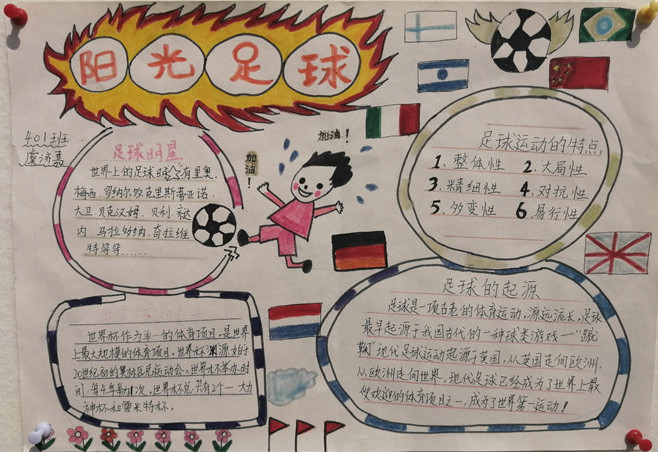 阳光足球
401班
加油！
加油！
足球明星
世界上的足球明众有里奥
梅西、罗纳尔多克里斯蒂亚诺、
大卫 贝克汉姆、贝利
内、马拉多纳、奇拉维
特等等……
足球运动的特点
1、整体性 2、大局性
3、精细性 4、对抗性
5、多变性 6、易行性
足球的起源
足球是一项古老的体育运动,源远流长,足球
最早起源于我国古代的一种球类游戏—"蹴
鞠"现代足球运动起源于英国,从英国走向欧洲,
从欧洲走向世界,现代足球已经成为了世界上最
受欢迎的体育项目之一,成为了世界第一运动!
世界杯作为单一的体育项目,是世界
上最大规模的体育项目,世界杯渊源始于
20世纪初的奥林匹克运动会,世界杯举办时
间
神杯和雷米特杯.